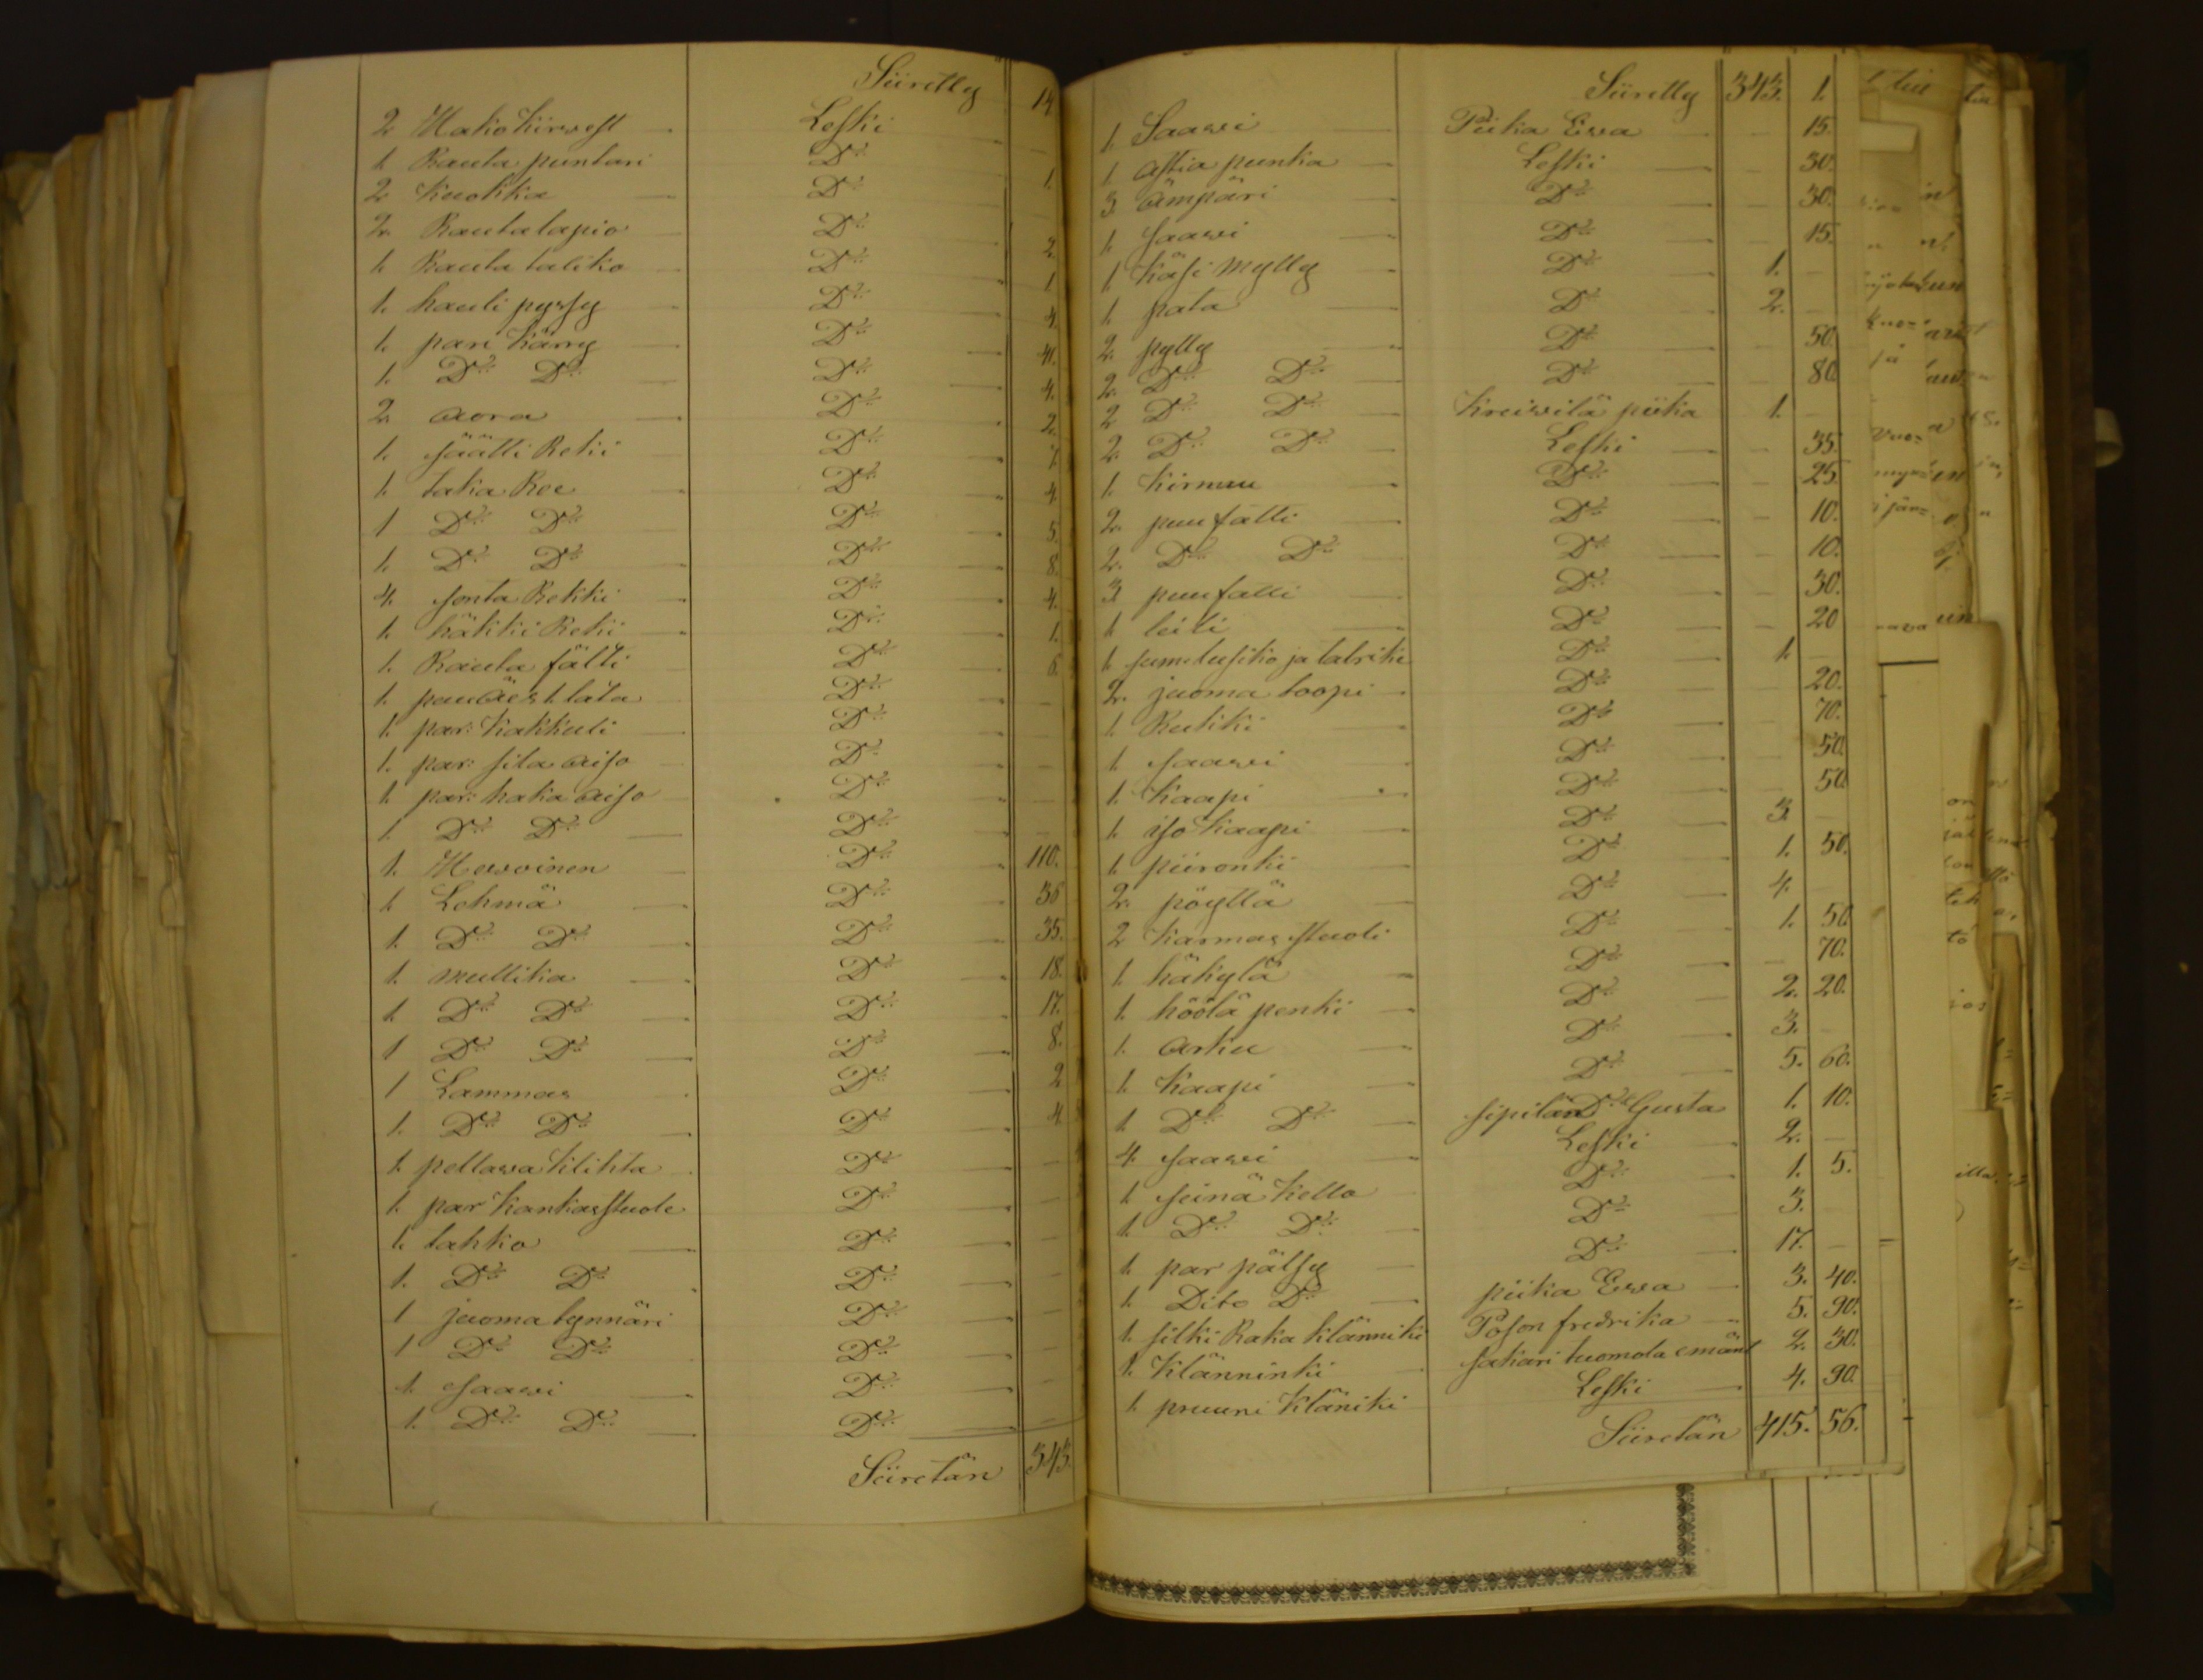 Siiretty 14
2 Hako Kirvest Leski
1 Rauta puntari Do 1.
2 Kuokka Do
2. Rautalapio Do 2.
1. Rauta taliko Do 1
1. hauli pyssy Do 4.
1. pari Kärry Do 41.
1. Do Do Do 4.
2. aora Do 2.
1. säätti Reki Do 7.
1. taka Ree Do 4.
1 Do Do Do 5.
1. Do Do Do 8.
4. sonta Rekki Do 4.
1. häkki Reki Do 1.
1. Rauta fälti Do 6.
1. puuäest lata Do
1. par: Kakkuli Do
1. par: sila aiso Do
1. par: haka aiso Do
1. Do Do Do
1. Hewoinen Do 110.
1. Lehmä Do 36
1. Do Do Do 35.
1. mullika Do 18.
1. Do Do Do 17.
1 Do Do Do 8.
1 Lammas Do 2
1. Do Do Do 4
1. pellawa Klihta Do
1. par Kankasstuole Do
1. tahko Do
1. Do Do Do
1 juoma tynnäri Do
1 Do Do Do
1. saawi Do
1. Do Do Do
Siiretän 343.
Siiretty 343. 1.
1. Saawi Piika Ewa 15.
1. astia punka Leski 30.
3. ämpäri Do 30.
1. saawi Do 15.
1 Käsi mylly Do 1.
1. pata Do 2.
2. pylly Do 50.
2. Do Do Do 80.
2 Do Do Kreiwilä piika 1.
2. Do Do Leski 35.
1. Kirnuu Do 25.
2. puu fatti Do 10.
2. Do Do Do 10.
3 puu fatti Do 30.
1 leili Do 20
1. sum: lusiko ja talrike Do 1.
2. juoma toopi Do 20.
1. Rukki Do 70.
1 saawi Do 50.
1. Kaapi Do 50.
1. iso Kaapi Do 3.
1. piironki Do 1. 50.
2. pöyttä Do 4.
2 Karmas stuoli Do 1. 50
1. häkylä Do 70.
1. höölä penki Do 2. 20.
1. arku Do 3.
1. Kaapi Do 5. 60.
1 Do Do sipilän Gusta 1. 10.
4. saawi Leski 2.
1. seinä Kello Do 1. 5.
1. Do Do Do 3.
1. par pälsy Do 17.
1. Dito Do piika Ewa 3. 40.
1. silki Raka klänniki Poson fredrika 5. 90.
1. Klänninki sakari tuomola emänt 2. 30.
1. pruuni Kläniki Leski 4. 90.
Siiretän 415. 56.